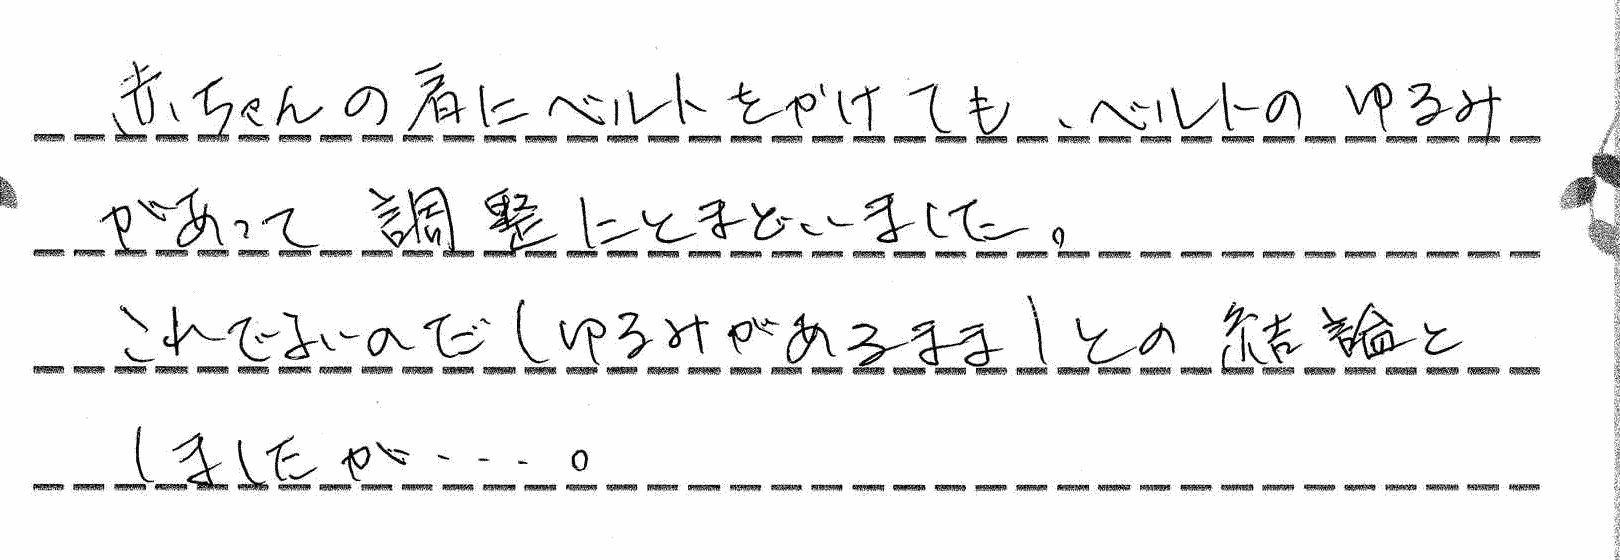 赤ちゃんの肩にベルトをかけても、ベルトのゆるみ
があって調整にとまどいました。
これでよいのだ(ゆるみがあるまま)との結論と
しましたが・・・。